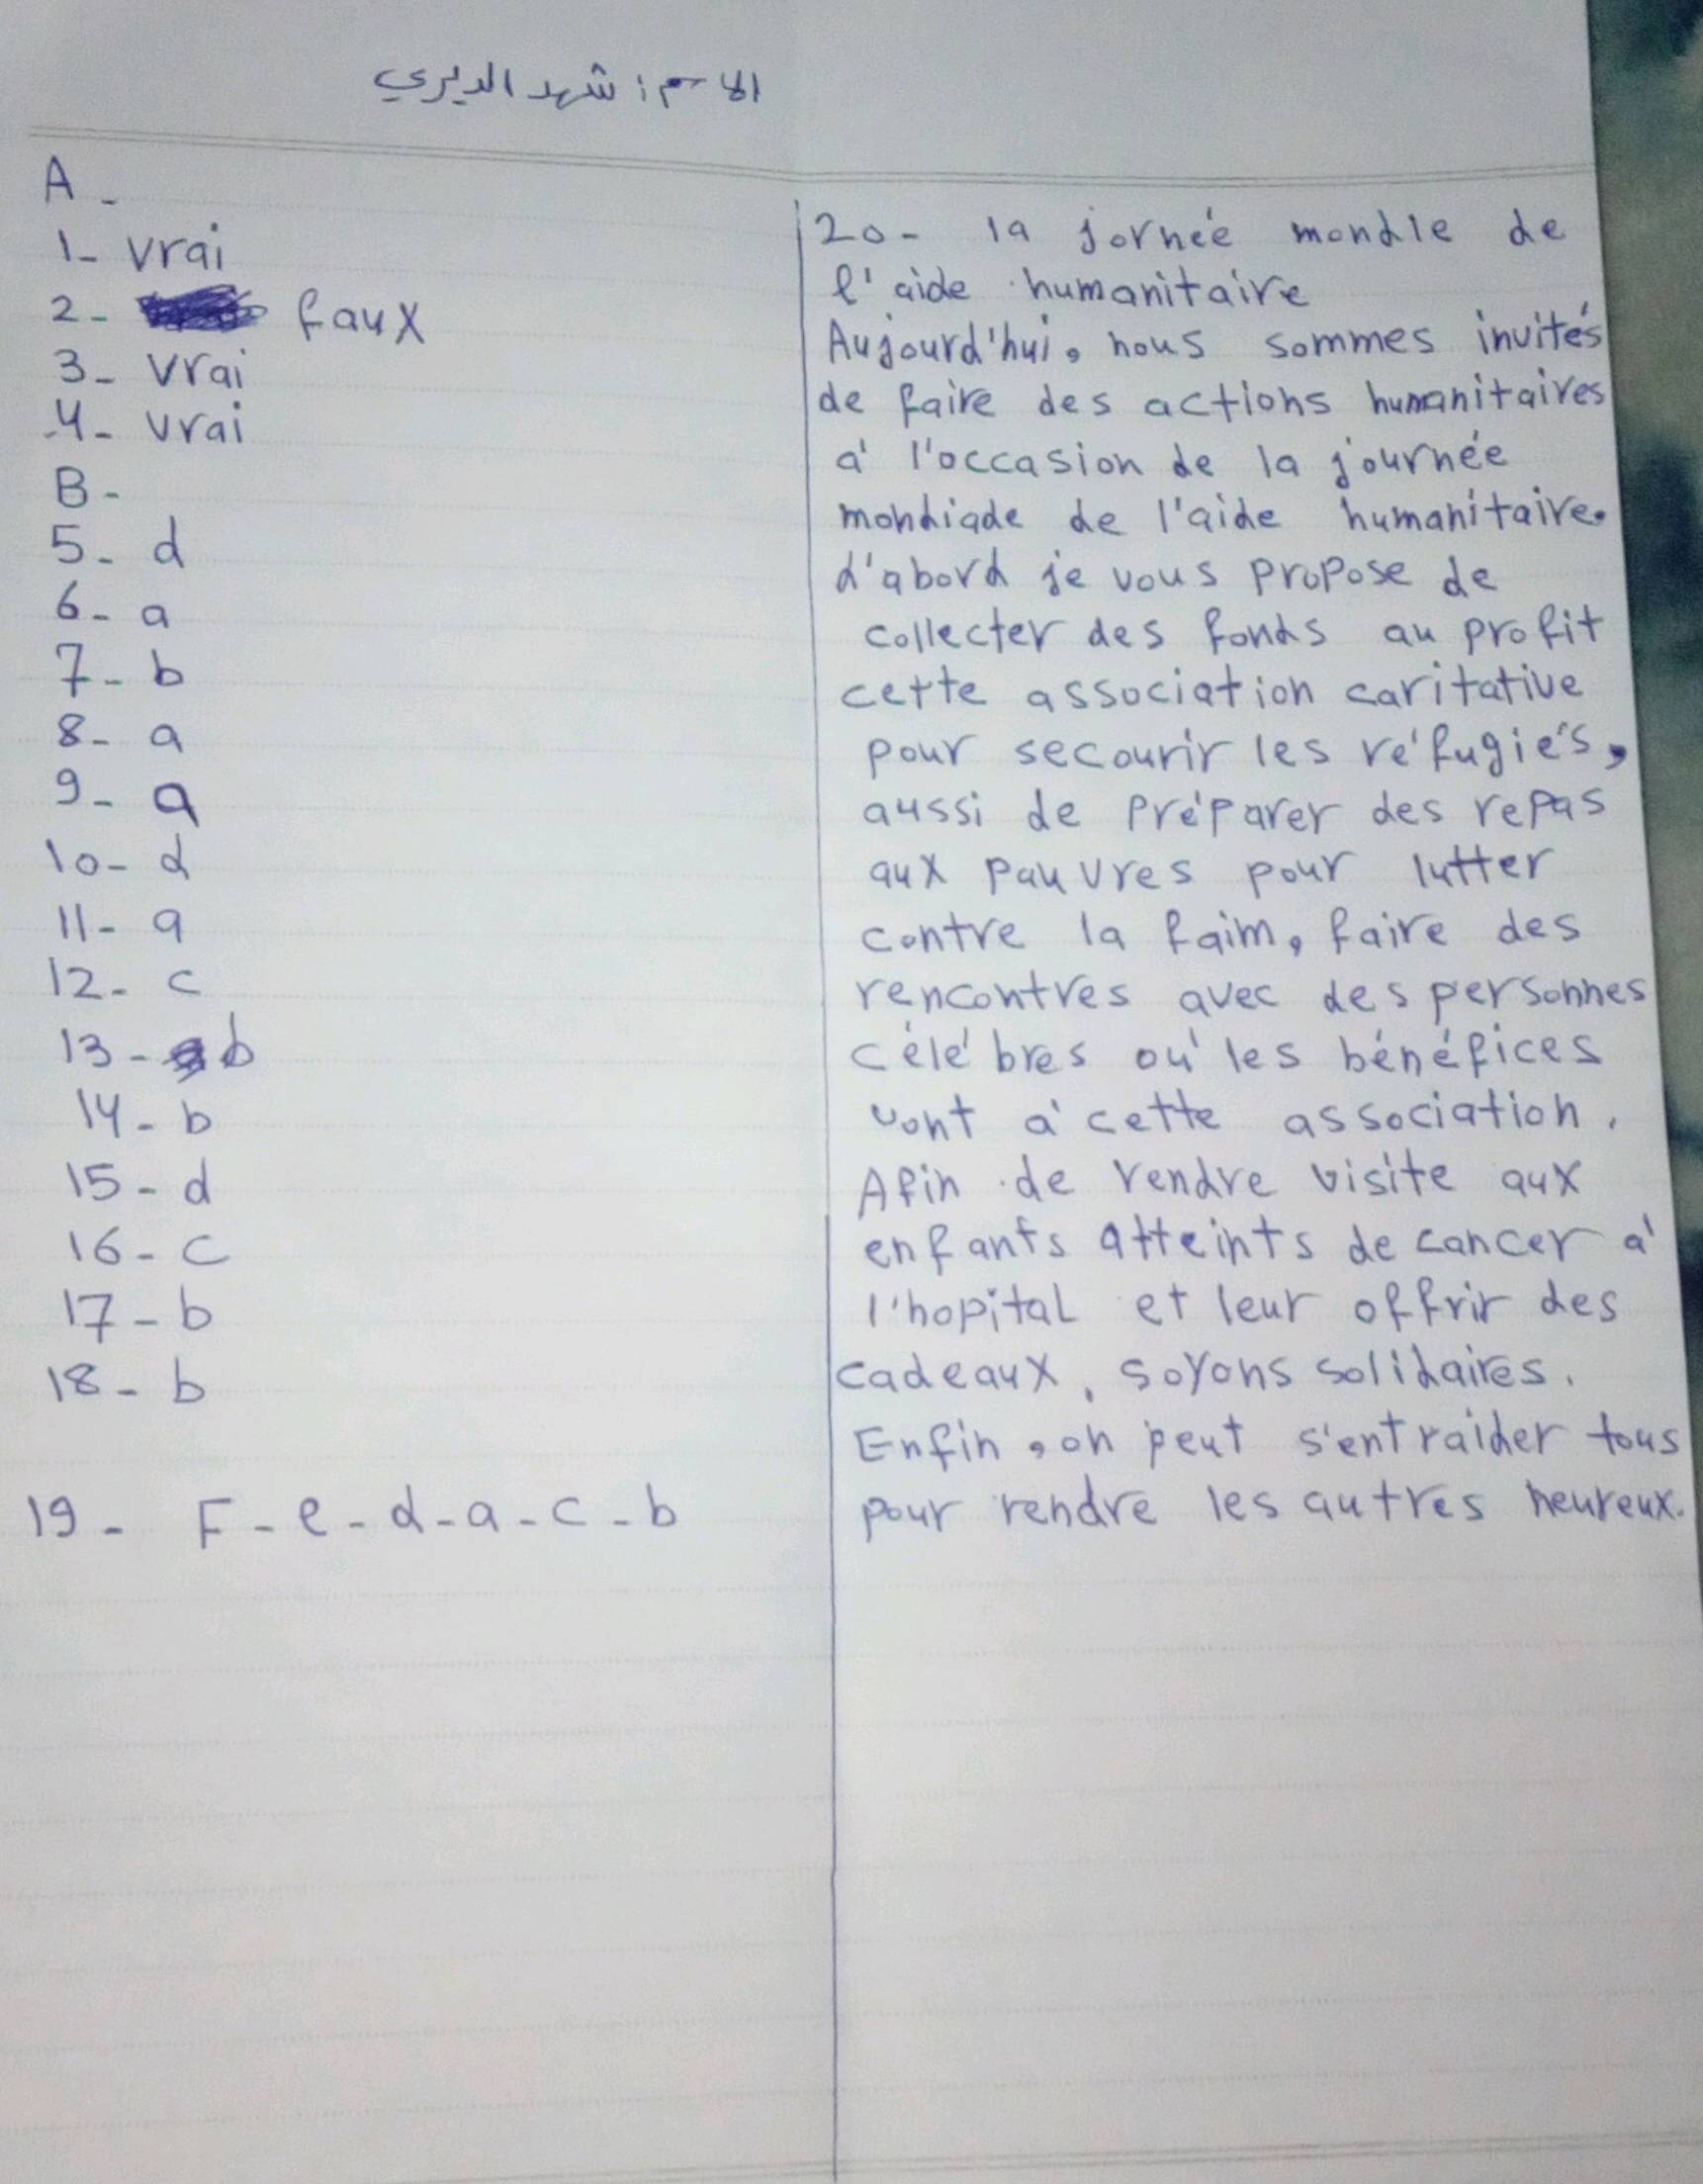 الاسم: شهد الديري
A -
1- vrai
2- faux
3- vrai
4- vrai
B -
5- d
6- a
7- b
8- a
9- a
10- d
11- a
12- c
13- b
14- b
15- d
16- c
17- b
18- b
19- F-e-d-a-c-b
20- la jornée mondle de
l'aide humanitaire
Aujourd'hui, nous sommes invités
de faire des actions humanitaires
à l'occasion de la journée
mondiade de l'aide humanitaire.
d'abord je vous propose de
collecter des fonds au profit
cette association caritative
pour secourir les réfugiés,
aussi de préparer des repas
aux pauvres pour lutter
contre la faim, faire des
rencontres avec des personnes
célébres où les bénéfices
vont à cette association.
Afin de rendre visite aux
enfants atteints de cancer à
l'hopital et leur offrir des
cadeaux, soyons solidaires.
Enfin, on peut s'entraider tous
pour rendre les autres heureux.